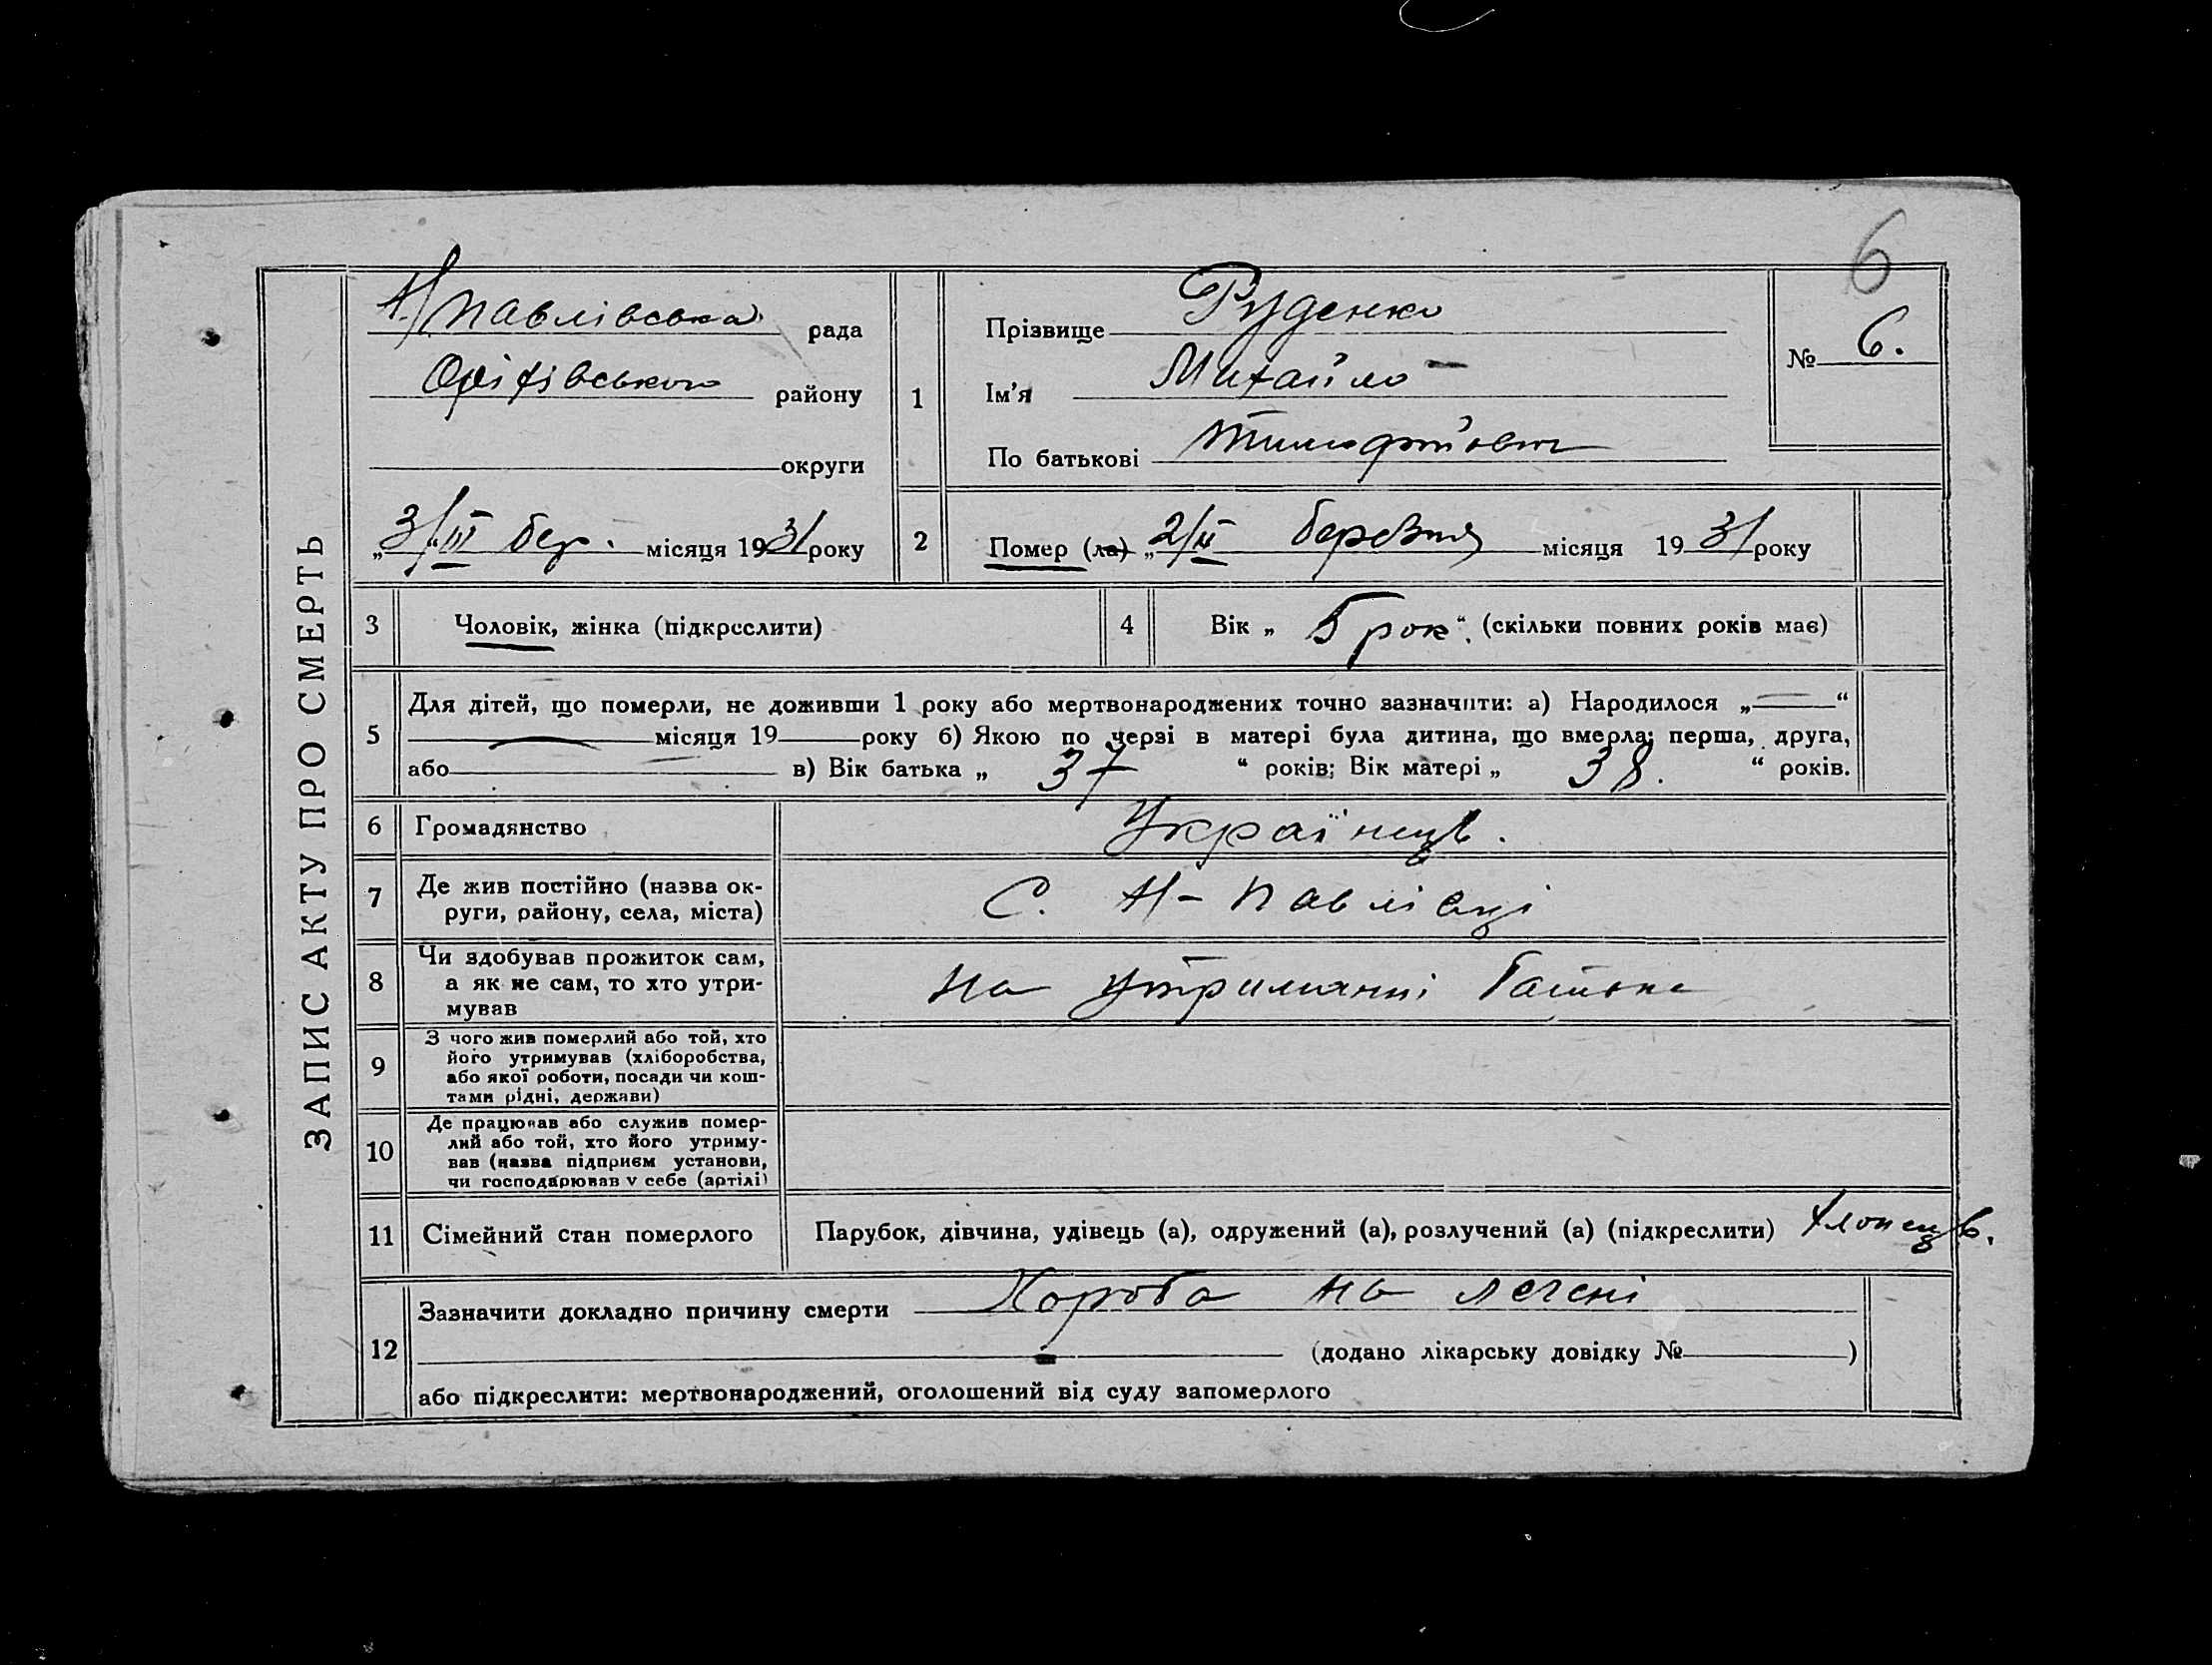 6
ЗАПИС АКТУ ПРО СМЕРТЬ
Н/Павлівська рада
Оріхівського району
округи
„3/III“ бер. місяця 1931 року
1
Прізвище Руденко
Ім’я Михайло
По батькові Тимофійович
№ 6.
2
Помер (ла) „2/III березня місяця 1931 року
3
Чоловік, жінка (підкреслити)
4
Вік „ 5 рок“. (скільки повних років має)
5
Для дітей, що померли, не доживши 1 року або мертвонароджених точно зазначити: а) Народилося „—“
— місяця 19 року б) Якою по черзі в матері була дитина, що вмерла: перша, друга,
або в) Вік батька „ 37 “ років; Вік матері „ 38. “ років.
6
Громадянство
Українець.
7
Де жив постійно (назва ок-
руги, району, села, міста)
С. Н-Павлівці
8
Чи здобував прожиток сам,
а як не сам, то хто утри-
мував
На утриманні батька
9
З чого жив померлий або той, хто
його утримував (хліборобства,
або якої роботи, посади чи кош-
тами рідні, держави)
10
Де працював або служив помер-
лий або той, хто його утриму-
вав (назва підприєм установи,
чи господарював у себе (артілі)
11
Сімейний стан померлого
Парубок, дівчина, удівець (а), одружений (а), розлучений (а) (підкреслити) хлопець.
12
Зазначити докладно причину смерти Хороба на легені
(додано лікарську довідку № )
або підкреслити: мертвонароджений, оголошений від суду запомерлого